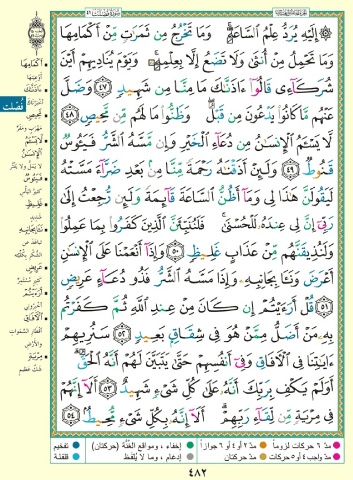 إِلَيْهِ يُرَدُّ عِلْمُ السَّاعَةِ ۚ وَمَا تَخْرُجُ مِن ثَمَرَاتٍ مِّنْ أَكْمَامِهَا
وَمَا تَحْمِلُ مِنْ أُنثَىٰ وَلَا تَضَعُ إِلَّا بِعِلْمِهِ ۚ وَيَوْمَ يُنَادِيهِمْ أَيْنَ
شُرَكَاءِى قَالُوا ءَاذَنَّاكَ مَا مِنَّا مِن شَهِيدٍ ٤٧ وَضَلَّ
عَنْهُم مَّا كَانُوا يَدْعُونَ مِن قَبْلُ ۖ وَظَنُّوا مَا لَهُم مِّن مَّحِيصٍ ٤٨
لَّا يَسْـَٔمُ الْإِنسَـٰنُ مِن دُعَاءِ الْخَيْرِ وَإِن مَّسَّهُ الشَّرُّ فَيَـُٔوسٌ
قَنُوطٌ ٤٩ وَلَئِنْ أَذَقْنَـٰهُ رَحْمَةً مِّنَّا مِن بَعْدِ ضَرَّاءَ مَسَّتْهُ
لَيَقُولَنَّ هَـٰذَا لِى وَمَا أَظُنُّ السَّاعَةَ قَائِمَةً وَلَئِن رُّجِعْتُ إِلَىٰ
رَبِّى إِنَّ لِى عِندَهُ لَلْحُسْنَىٰ ۚ فَلَنُنَبِّئَنَّ الَّذِينَ كَفَرُوا بِمَا عَمِلُوا
وَلَنُذِيقَنَّهُم مِّنْ عَذَابٍ غَلِيظٍ ٥٠ وَإِذَا أَنْعَمْنَا عَلَى الْإِنسَـٰنِ
أَعْرَضَ وَنَـَٔا بِجَانِبِهِ وَإِذَا مَسَّهُ الشَّرُّ فَذُو دُعَاءٍ عَرِيضٍ
٥١ قُلْ أَرَءَيْتُمْ إِن كَانَ مِنْ عِندِ اللَّهِ ثُمَّ كَفَرْتُم
بِهِ مَنْ أَضَلُّ مِمَّنْ هُوَ فِى شِقَاقٍ بَعِيدٍ ٥٢ سَنُرِيهِمْ
ءَايَـٰتِنَا فِى الْـَٔافَاقِ وَفِى أَنفُسِهِمْ حَتَّىٰ يَتَبَيَّنَ لَهُمْ أَنَّهُ الْحَقُّ ۗ
أَوَلَمْ يَكْفِ بِرَبِّكَ أَنَّهُ عَلَىٰ كُلِّ شَىْءٍ شَهِيدٌ ٥٣ أَلَا إِنَّهُمْ
فِى مِرْيَةٍ مِّن لِّقَاءِ رَبِّهِمْ ۗ أَلَا إِنَّهُ بِكُلِّ شَىْءٍ مُّحِيطٌ ٥٤
فُصِّلَت
أَكْمَامِهَا
ءَاذَنَّاكَ
مَّحِيصٍ
لَّا يَسْـَٔمُ
الْإِنسَـٰنُ
فَيَـُٔوسٌ
غَلِيظٍ
شديد
عَرِيضٍ
أَرَءَيْتُمْ
الْـَٔافَاقِ
مِرْيَةٍ
شك عظيم
مدّ ٦ حركات لزوماً
مدّ ٢ أو ٤ أو ٦ جوازاً
إخفاء، ومواقع الغُنَّة (حركتان)
تفخيم
مدّ واجب ٤ أو ٥ حركات
مدّ حركتان
إدغام، وما لا يُلفَظ
قلقلة
٤٨٢